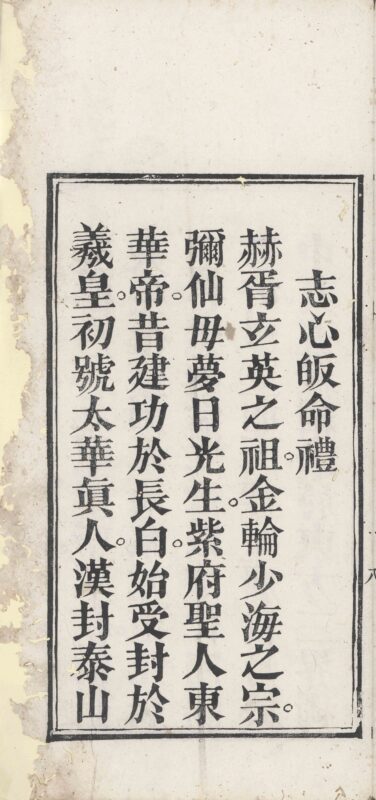 志心皈命禮
赫胥玄英之祖。金輪少海之宗。
彌仙毋夢日光生。紫府聖人東
華帝。昔建功於長白。始受封於
羲皇。初號太華眞人。漢封泰山